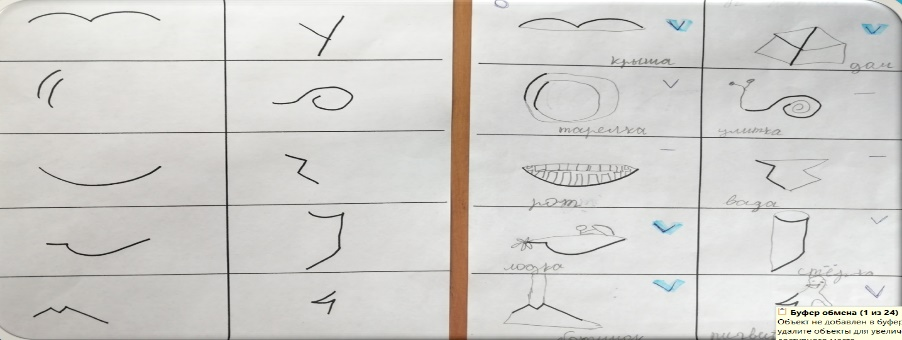 крыша
дом
тарелка
улитка
рот
ваза
лодка
Буфер обмена (1 из 24)
Объект не добавлен в буфер
удалите объекты для увелич